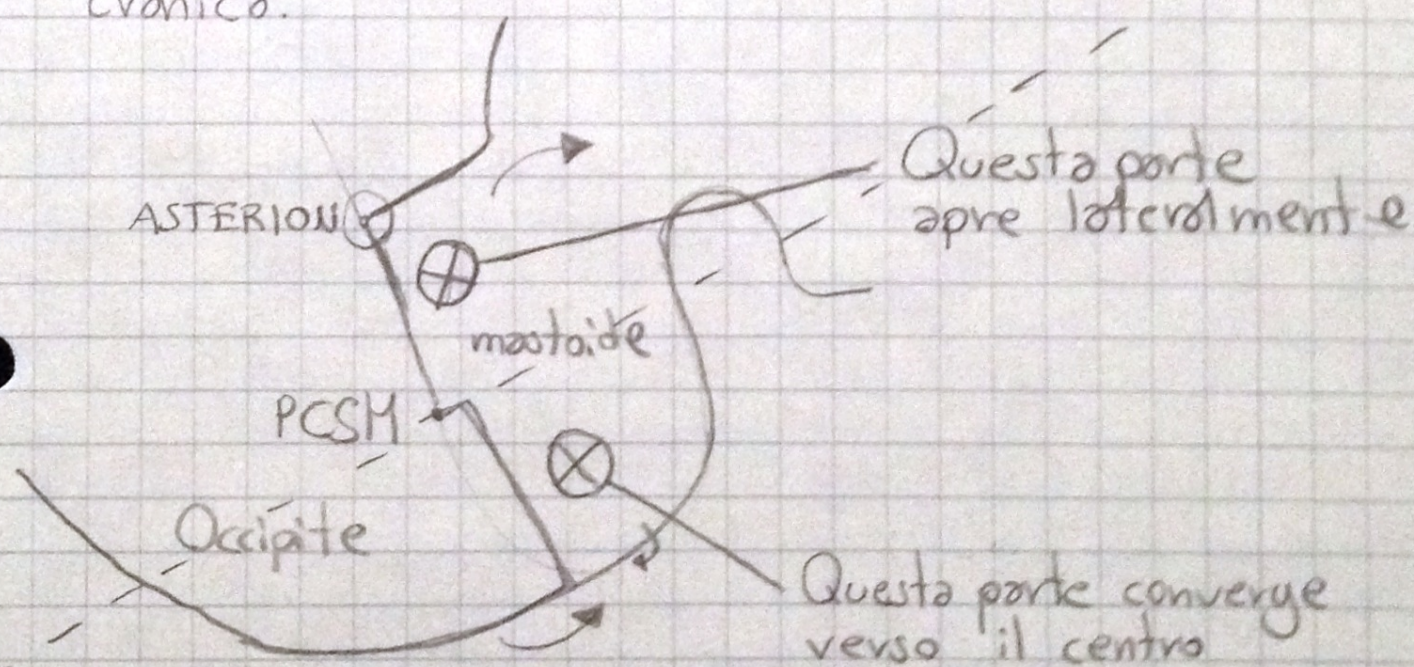 cronico.
Questa parte
apre lateralmente
ASTERION
mastoide
PCSM
Occipite
Questa parte converge
verso il centro